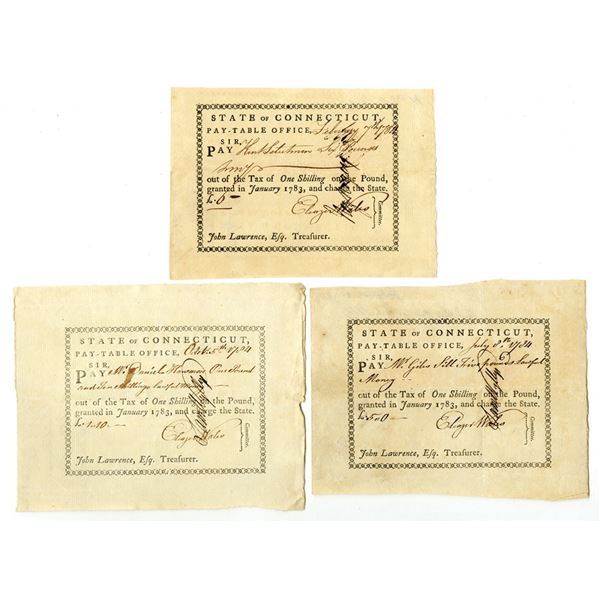 STATE OF CONNECTICUT,
PAY-TABLE OFFICE, February 7th 1784
SIR,
PAY Kent Selectmen Six Pounds
out of the Tax of One Shilling on the Pound,
granted in January 1783, and charge the State.
£6
Eleazer Wales
Committee.
John Lawrence, Esq. Treasurer.
STATE OF CONNECTICUT,
PAY-TABLE OFFICE, 1784
SIR,
PAY Mr Daniel One Pound
and Ten Shillings Lawful Money
out of the Tax of One Shilling on the Pound,
granted in January 1783, and charge the State.
£1..10
Eleazr Wales
Committee.
John Lawrence, Esq. Treasurer.
STATE OF CONNECTICUT,
PAY-TABLE OFFICE, July 1784
SIR,
PAY Mr Giles Sill Five pounds Lawful
Money
out of the Tax of One Shilling on the Pound,
granted in January 1783, and charge the State.
£5..0
Eleazr Wales
Committee.
John Lawrence, Esq. Treasurer.